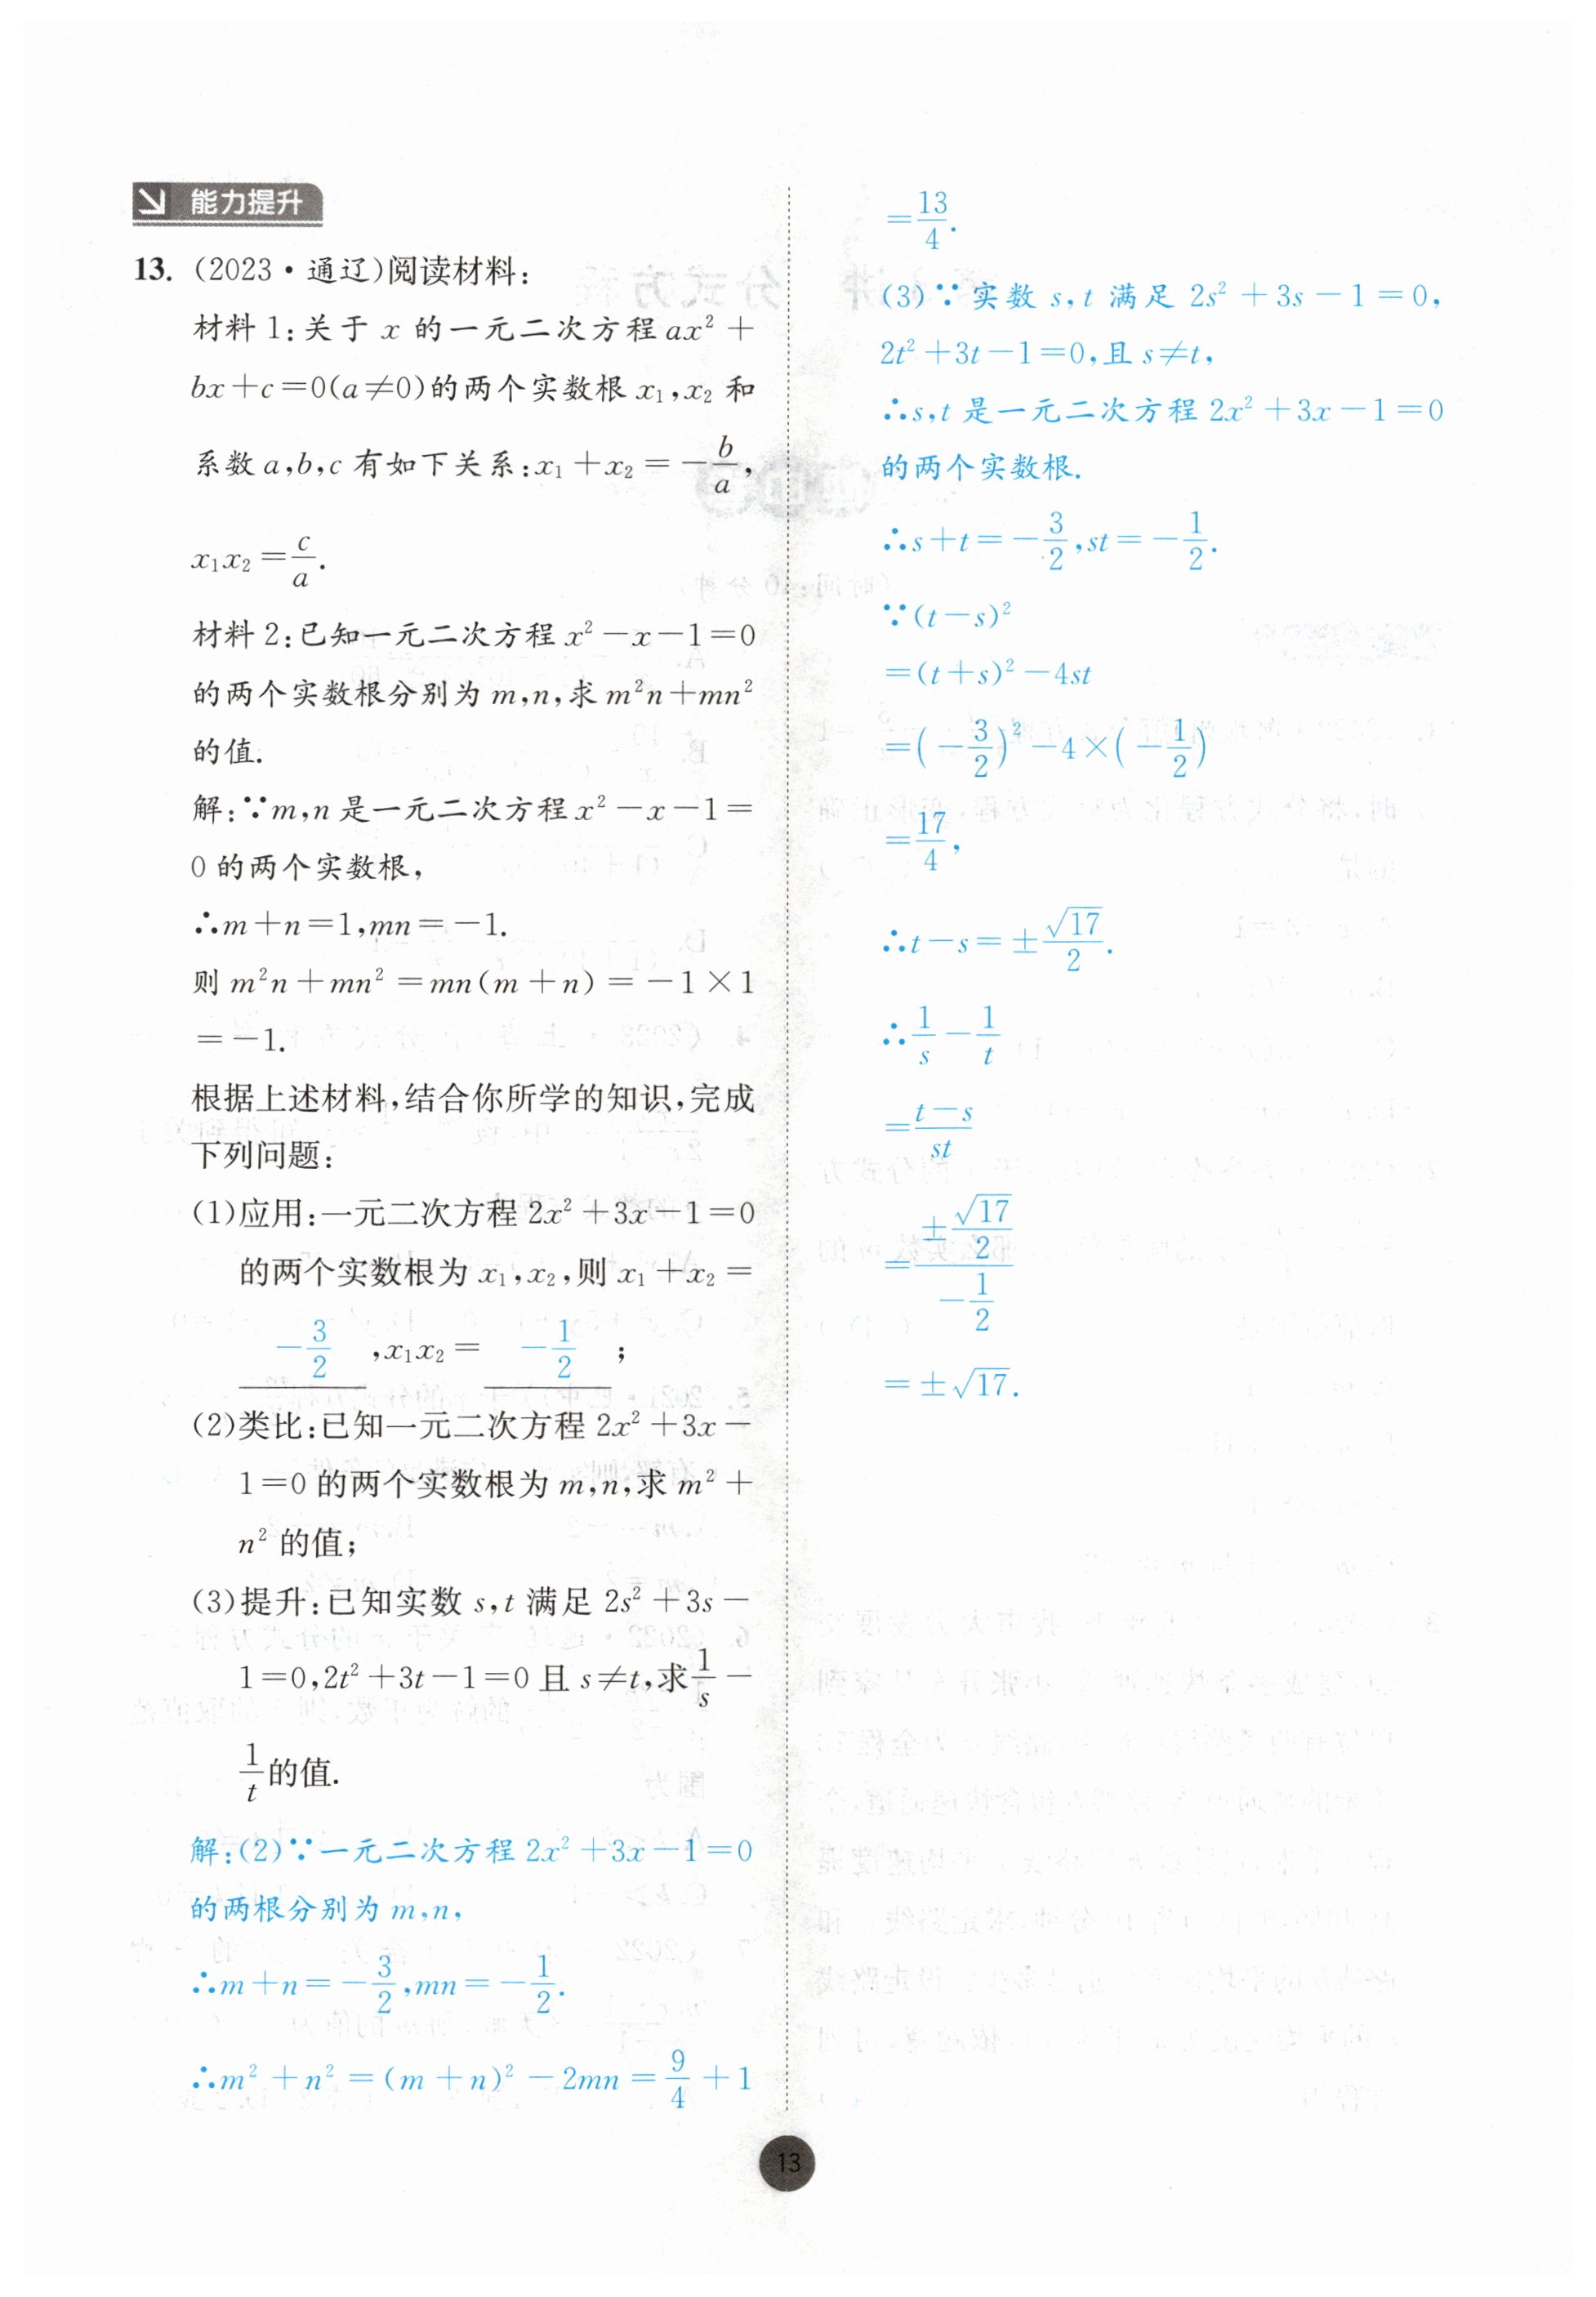 能力提升
13. (2023·通辽)阅读材料:
材料 1:关于 x 的一元二次方程 ax² +
bx+c=0(a≠0)的两个实数根 x₁,x₂ 和
系数 a,b,c 有如下关系:x₁+x₂=-b/a,
x₁x₂=c/a.
材料 2:已知一元二次方程 x²-x-1=0
的两个实数根分别为 m,n,求 m²n+mn²
的值.
解:∵m,n 是一元二次方程 x²-x-1=
0 的两个实数根,
∴m+n=1,mn=-1.
则 m²n+mn²=mn(m+n)=-1×1
=-1.
根据上述材料,结合你所学的知识,完成
下列问题:
(1)应用:一元二次方程 2x²+3x-1=0
的两个实数根为 x₁,x₂,则 x₁+x₂=
-3/2 ,x₁x₂= -1/2 ;
(2)类比:已知一元二次方程 2x²+3x-
1=0 的两个实数根为 m,n,求 m²+
n² 的值;
(3)提升:已知实数 s,t 满足 2s²+3s-
1=0,2t²+3t-1=0 且 s≠t,求 1/s-
1/t 的值.
解:(2)∵一元二次方程 2x²+3x-1=0
的两根分别为 m,n,
∴m+n=-3/2,mn=-1/2.
∴m²+n²=(m+n)²-2mn=9/4+1
=13/4.
(3)∵实数 s,t 满足 2s²+3s-1=0,
2t²+3t-1=0,且 s≠t,
∴s,t 是一元二次方程 2x²+3x-1=0
的两个实数根.
∴s+t=-3/2,st=-1/2.
∵(t-s)²
=(t+s)²-4st
=(-3/2)²-4×(-1/2)
=17/4,
∴t-s=±√17/2.
∴1/s-1/t
=(t-s)/st
=(±√17/2)/(-1/2)
=±√17.
13